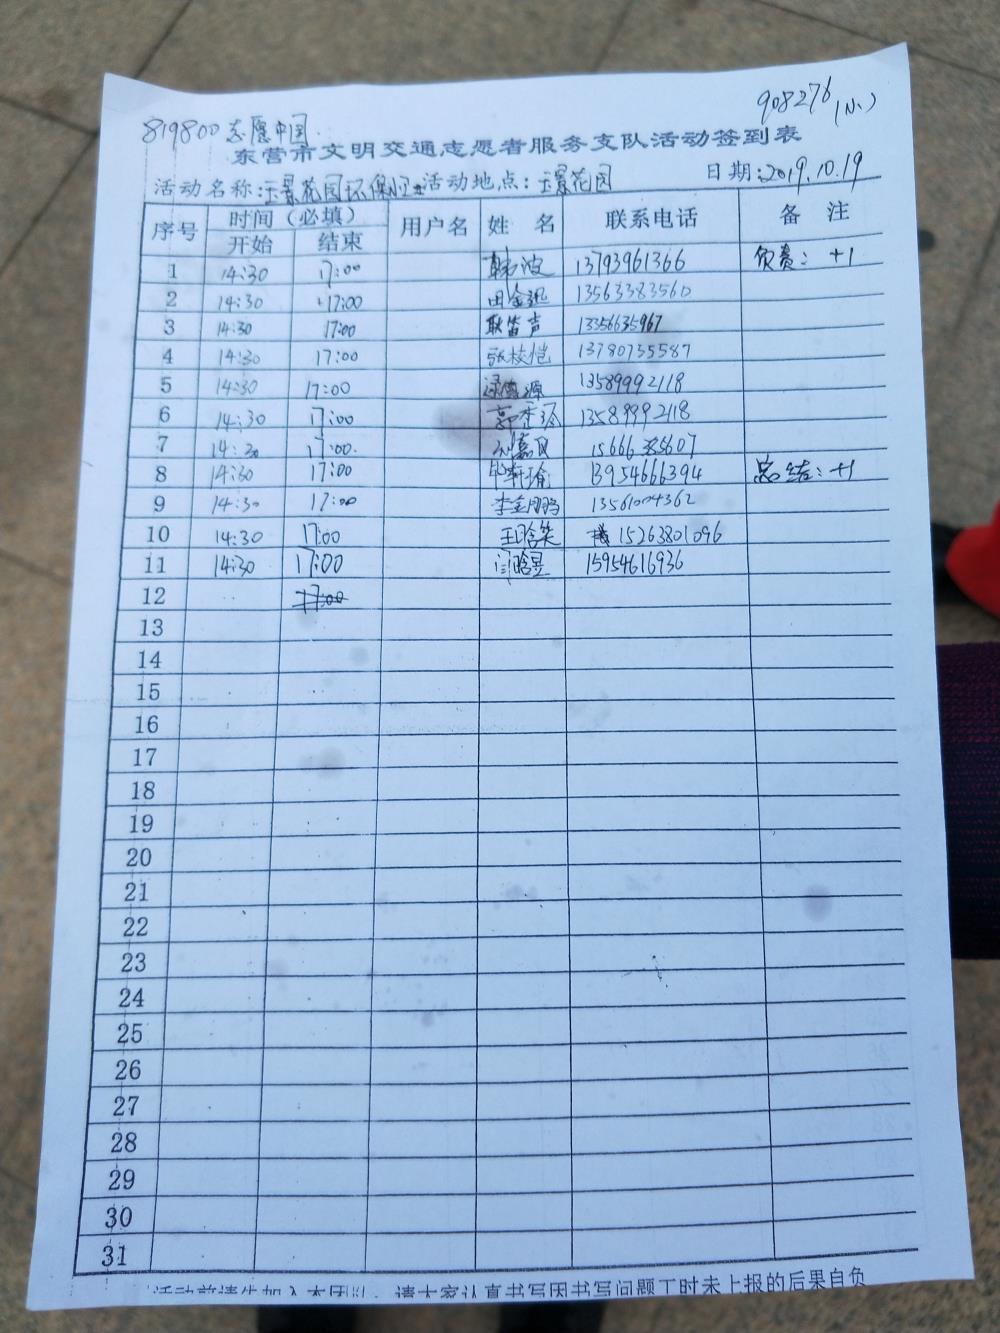 908276(小)
819800志愿中国
东营市文明交通志愿者服务支队活动签到表
活动名称:玉景花园环保 活动地点:玉景花园 日期:2019.10.19
序号 时间(必填) 用户名 姓 名 联系电话 备 注
开始 结束
1 14:30 17:00 韩波 13793961366 负责:+1
2 14:30 17:00 田金 13563383560
3 14:30 17:00 耿笛声 13356635967
4 14:30 17:00 张枝恺 13780735587
5 14:30 17:00 源 13589992118
6 14:30 17:00 郭 13589992118
7 14:30 17:00 刘嘉 15666385607
8 14:30 17:00 毕轩瑜 13954666394 总结:+1
9 14:30 17:00 李金 13561004362
10 14:30 17:00 王晗笑 15263801096
11 14:30 17:00 闫晗昱 15954616936
12 17:00
13
14
15
16
17
18
19
20
21
22
23
24
25
26
27
28
29
30
31
活动前请先加入本团队,请大家认真书写因书写问题工时未上报的后果自负